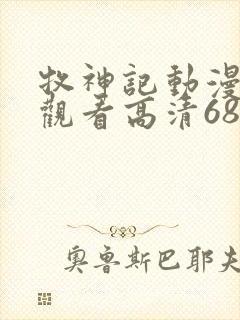 牧神記動漫
觀看高清68
奧魯斯巴耶夫